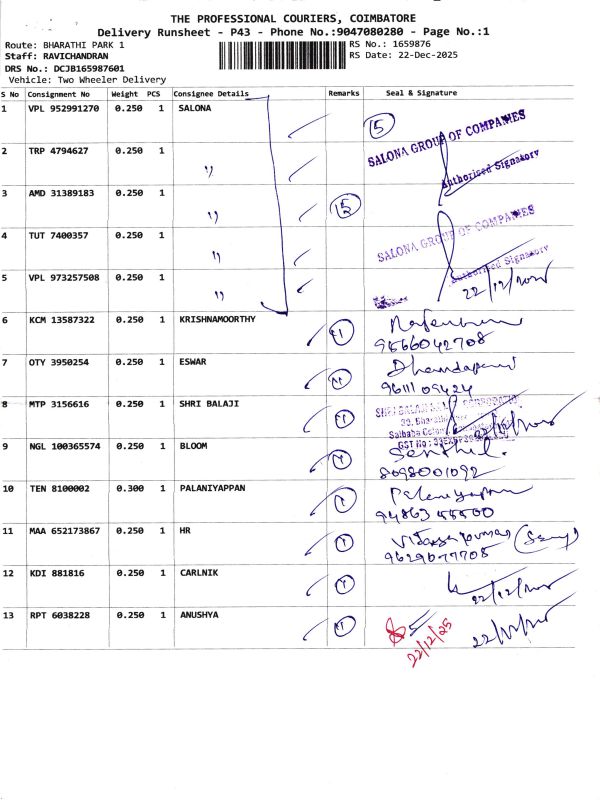 THE PROFESSIONAL COURIERS, COIMBATORE
Delivery Runsheet - P43 - Phone No.:9047080280 - Page No.:1
Route: BHARATHI PARK 1 RS No.: 1659876
Staff: RAVICHANDRAN RS Date: 22-Dec-2025
DRS No.: DCJB165987601
Vehicle: Two Wheeler Delivery
S No Consignment No Weight PCS Consignee Details Remarks Seal & Signature
1 VPL 952991270 0.250 1 SALONA
15
SALONA GROUP OF COMPANIES
Authorised Signatory
2 TRP 4794627 0.250 1 "
3 AMD 31389183 0.250 1 "
4 TUT 7400357 0.250 1 "
SALONA GROUP OF COMPANIES
Authorised Signatory
5 VPL 973257508 0.250 1 "
22/12/2025
6 KCM 13587322 0.250 1 KRISHNAMOORTHY
9566042708
7 OTY 3950254 0.250 1 ESWAR
Dhandapani
9611109424
8 MTP 3156616 0.250 1 SHRI BALAJI
9 NGL 100365574 0.250 1 BLOOM
Senthil.
8098001092
10 TEN 8100002 0.300 1 PALANIYAPPAN
Palaniyappan
9486355500
11 MAA 652173867 0.250 1 HR
9629077708
12 KDI 881816 0.250 1 CARLNIK
22/12/2025
13 RPT 6038228 0.250 1 ANUSHYA
22/12/25
22/12/2025